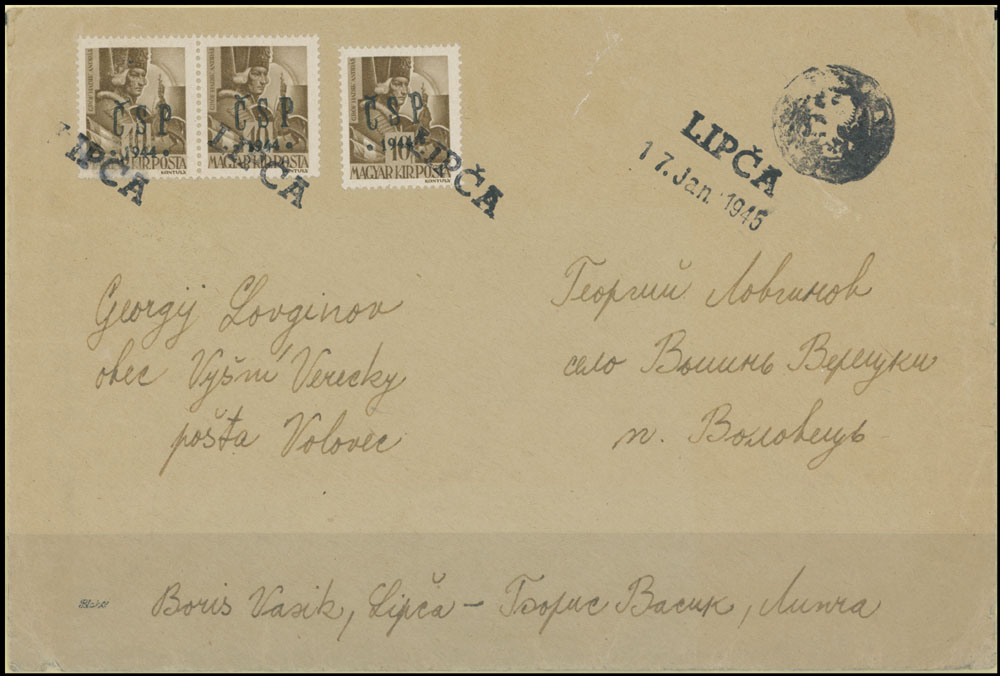 ČSP
·1944·
MAGYAR KIR POSTA
KONTULY
LIPČA
ČSP
·1944·
MAGYAR KIR POSTA
KONTULY
LIPČA
ČSP
·1944·
10
MAGYAR KIR POSTA
KONTULY
LIPČA
LIPČA
17. Jan. 1945
Georgij Lovginov
obec Vyšní Verecky
pošta Volovec
Георгий Ловгинов
село Вышнь Верецки
п. Воловець
Boris Vasik, Lipča – Борис Васик, Липча